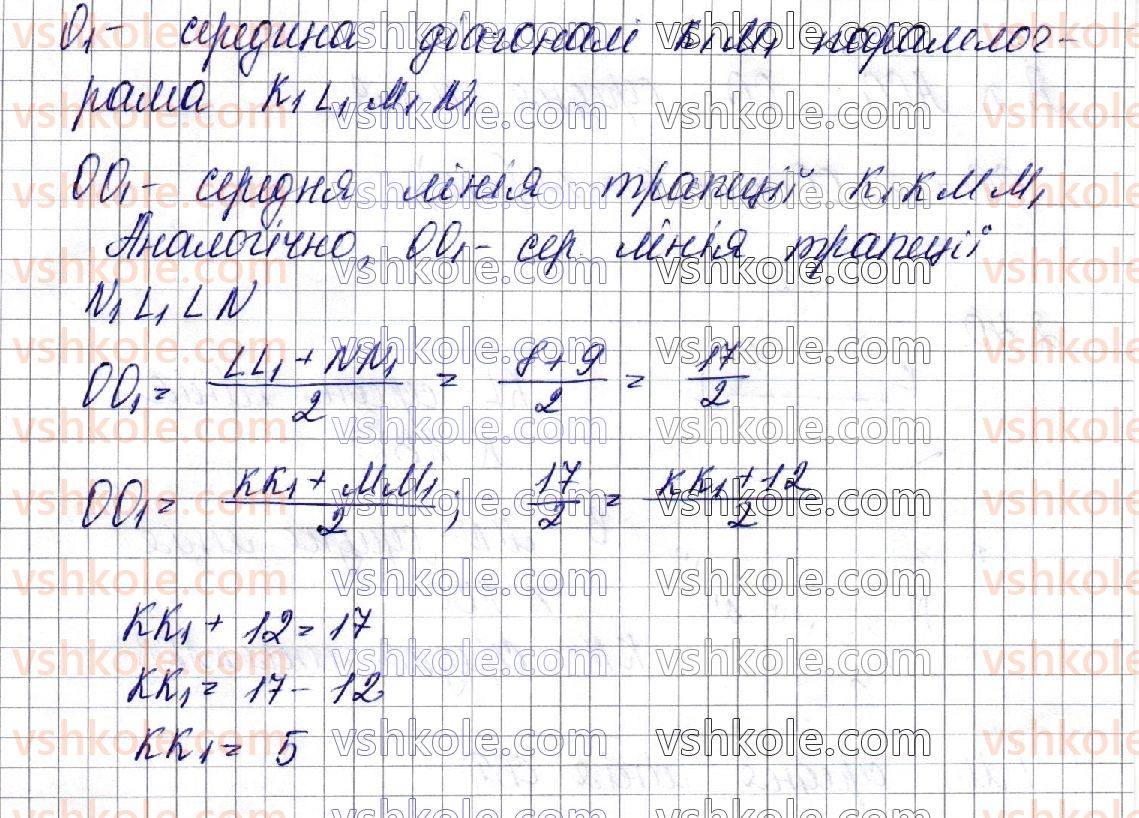 O₁ - середина діагоналі K₁M₁ паралелог-
рама K₁L₁M₁N₁
OO₁ - середня лінія трапеції K₁KMM₁
Аналогічно, OO₁ - сер. лінія трапеції
N₁L₁LN
OO₁ = (LL₁ + NN₁)/2 = (8+9)/2 = 17/2
OO₁ = (KK₁ + MM₁)/2; 17/2 = (KK₁ + 12)/2
KK₁ + 12 = 17
KK₁ = 17 - 12
KK₁ = 5
vshkole.com